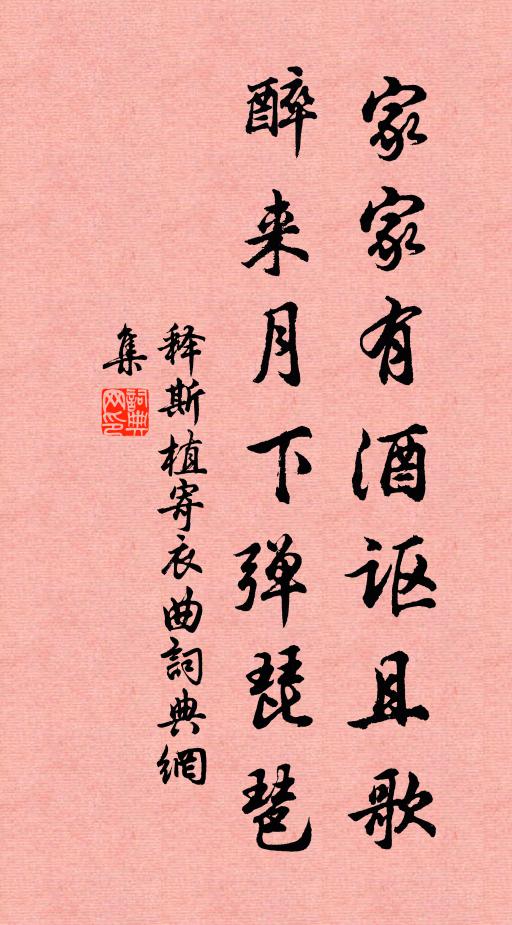 家家有酒讴且歌
醉来月下弹琵琶
释斯植寄衣曲詞典網
集
詞典网印